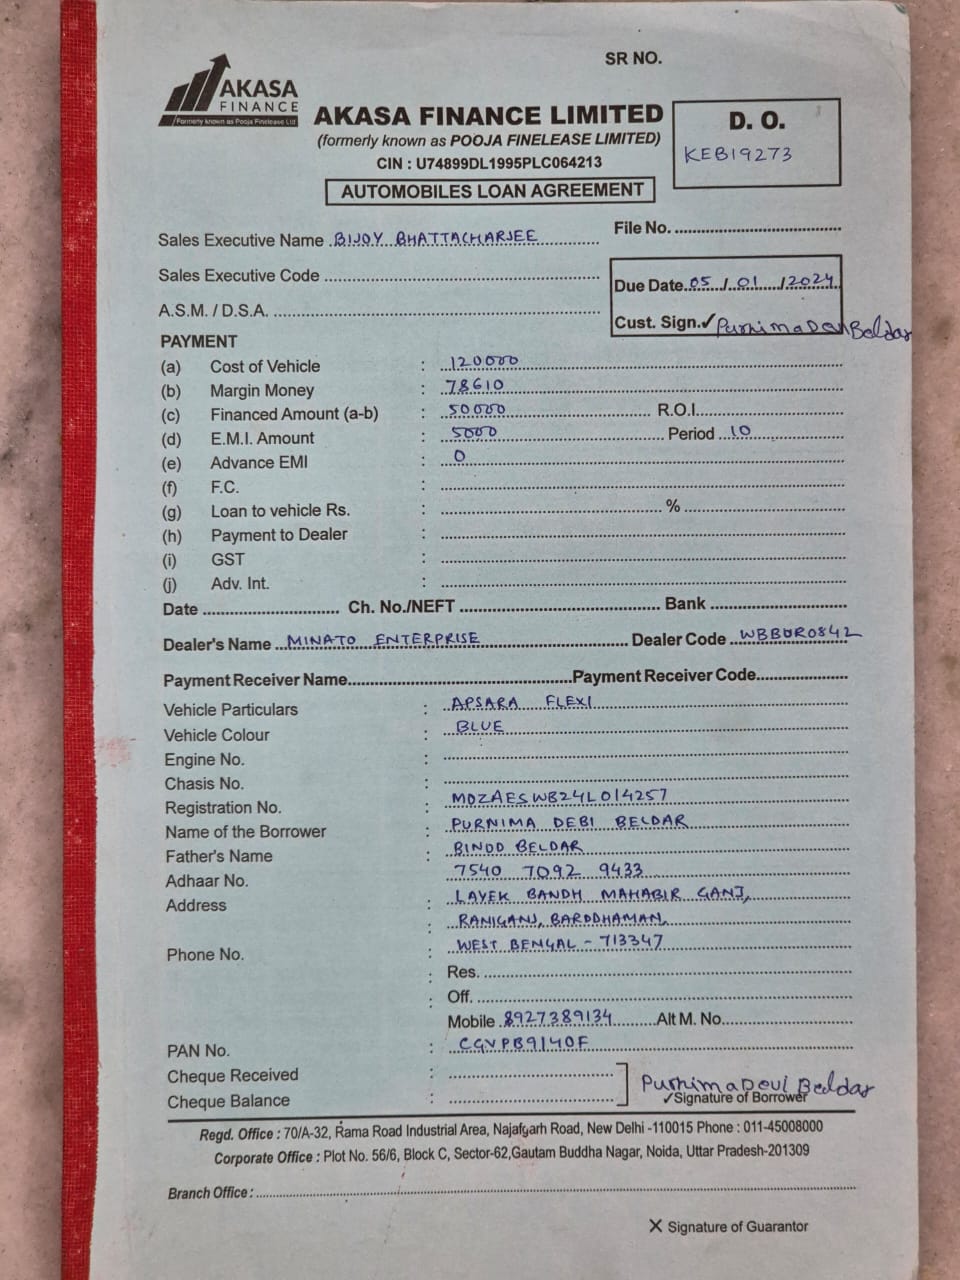 SR NO.
AKASA
FINANCE
Formerly known as Pooja Finelease Ltd
AKASA FINANCE LIMITED
(formerly known as POOJA FINELEASE LIMITED)
CIN : U74899DL1995PLC064213
AUTOMOBILES LOAN AGREEMENT
D. O.
KEB19273
Sales Executive Name BIJOY BHATTACHARJEE
File No.
Sales Executive Code
Due Date 05/01/2024
A.S.M. / D.S.A.
Cust. Sign.✓ Purnima Devi Beldar
PAYMENT
(a) Cost of Vehicle : 120000
(b) Margin Money : 78610
(c) Financed Amount (a-b) : 50000 R.O.I.
(d) E.M.I. Amount : 5000 Period 10
(e) Advance EMI : 0
(f) F.C. :
(g) Loan to vehicle Rs. : %
(h) Payment to Dealer :
(i) GST :
(j) Adv. Int. :
Date Ch. No./NEFT Bank
Dealer's Name MINATO ENTERPRISE Dealer Code WBBUR0842
Payment Receiver Name Payment Receiver Code
Vehicle Particulars : APSARA FLEXI
Vehicle Colour : BLUE
Engine No. :
Chasis No. :
Registration No. : MDZAESWB24L014257
Name of the Borrower : PURNIMA DEBI BELDAR
Father's Name : BINOD BELDAR
Adhaar No. 7540 7092 9433
Address : LAYEK BANDH MAHABIR GANJ,
: RANIGANJ, BARDDHAMAN,
Phone No. : WEST BENGAL - 713347
: Res.
: Off.
Mobile 8927389134 Alt M. No.
PAN No. : CGVPB9140F
Cheque Received :
Cheque Balance :
Purnima Devi Beldar
✓Signature of Borrower
Regd. Office : 70/A-32, Rama Road Industrial Area, Najafgarh Road, New Delhi -110015 Phone : 011-45008000
Corporate Office : Plot No. 56/6, Block C, Sector-62,Gautam Buddha Nagar, Noida, Uttar Pradesh-201309
Branch Office :
X Signature of Guarantor